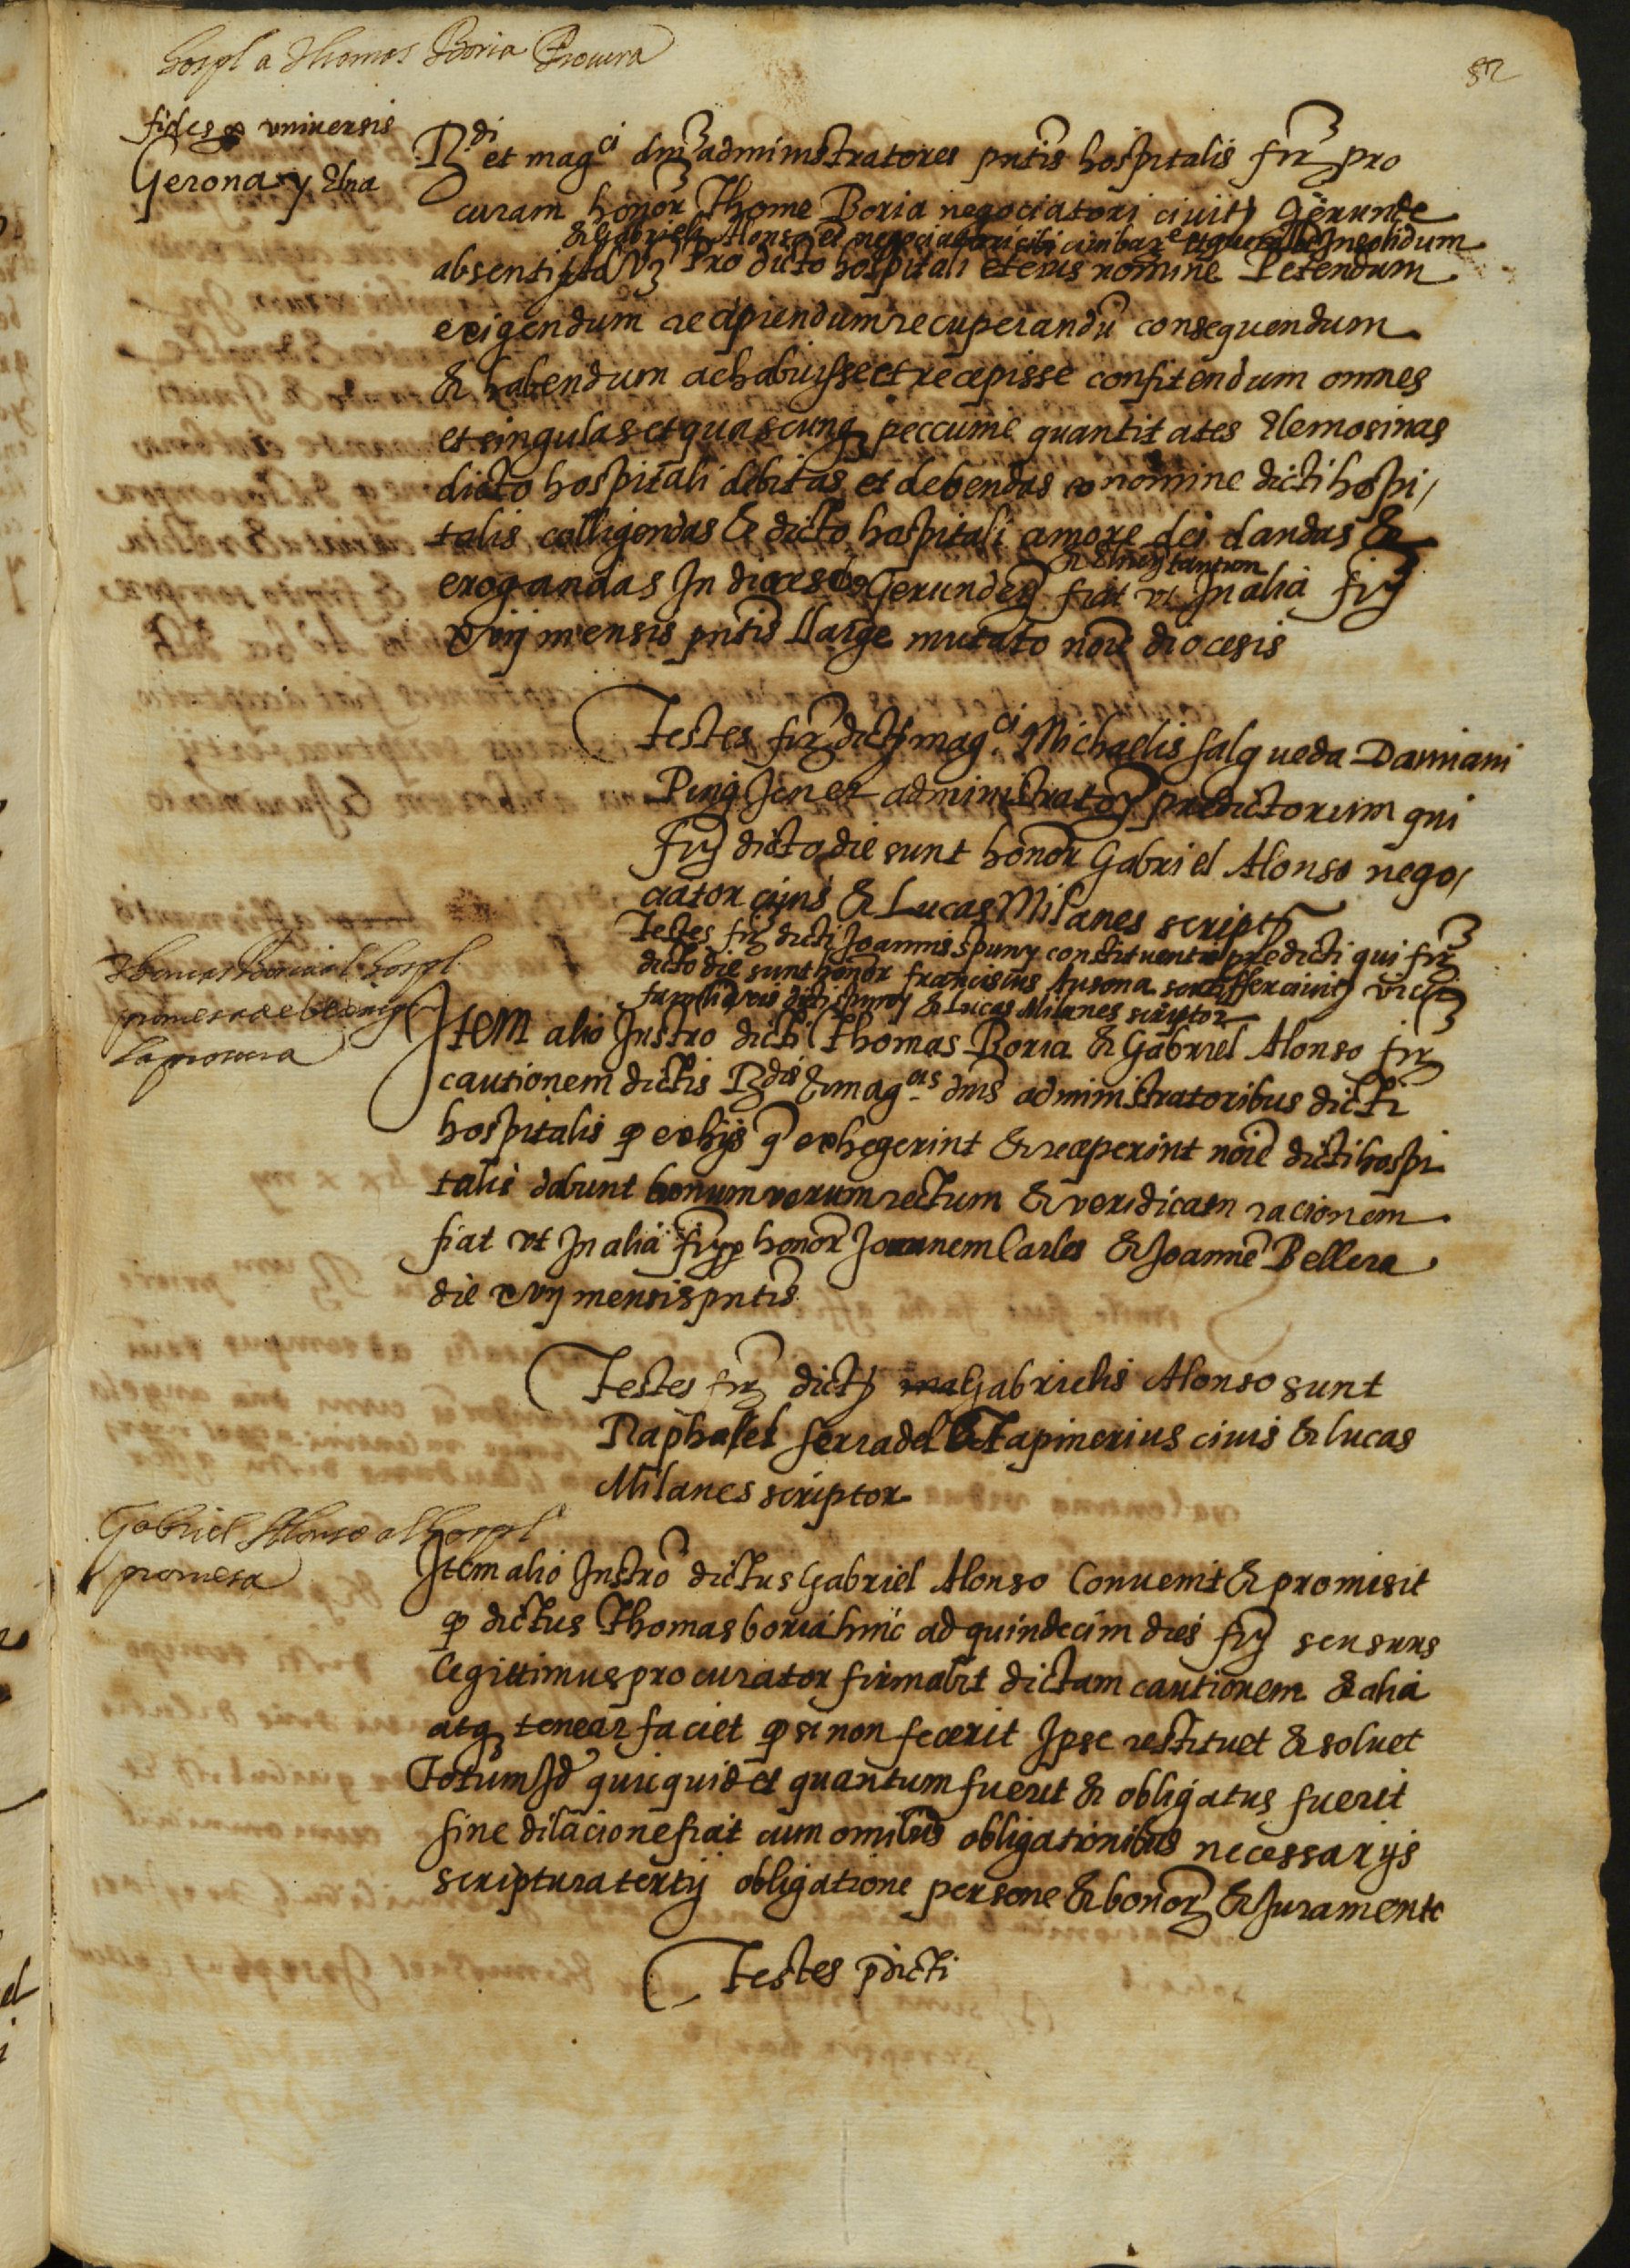 hospl a Thomas Boria Procura
82
fides universis
Gerona y Elna
Rdi et magci dni administratores pntis hospitalis fir pro
curam honor Thome Boria negociatori civit Gerunde
& Gabrieli Alonso negociatori civi bar Insolidum
absenti Pro dicto hospitali et eius nomine Petendum
exigendum recipiendum recuperandu consequendum
& habendum ac habuisse et recepisse confitendum omnes
et singulas et quascunq peccunie quantitates Elemosinas
dicto hospitali debitas et debendas nomine dicti hospi/
talis colligendas & dicto hospitali amore dei dandas &
& Elnen tantum
erogandas In dioces Gerunden fiat ut In alia fir
xvij mensis pntis llarge mutato noie diocesis
Testes fir dict magci Michaelis salgueda Damiani
Puig Jener administrator predictorum qui
fir dicto die sunt honor Gabriel Alonso nego/
ciator civis & Lucas Milanes script
Testes fir dicti Joannis spuny constituentis predicti qui fir
dicto die sunt honor franciscus Ausona
dicti spuny & Lucas Milanes scriptor
Thomas Boria al hospl
promesa de
la procura
Item alio Instro dicti Thomas Boria & Gabriel Alonso fir
cautionem dictis Rdis & magcis dnis administratoribus dicti
hospitalis q exhijs q exhegerint & receperint noie dicti hospi
talis dabunt bonum verum rectum & veridicam racionem
fiat ut In alia fir p honor Joannem Carles & Joanne Bellera
die xvij mensis pntis
Testes fir dict Gabrielis Alonso sunt
Raphael serradel Tapinerius civis & lucas
Milanes scriptor
Gabriel Alonso al hospl
promesa
Item alio Instro dictus Gabriel Alonso Convenit & promisit
q dictus Thomas boria hinc ad quindecim dies fir seu suus
legittimus procurator firmabit dictam cautionem & alia
atq tenear faciet q si non fecerit Ipse restituet & solvet
Totum Id quicquid et quantum fuerit & obligatus fuerit
sine dilacione fiat cum omibus obligationibus necessarijs
scriptura tertij obligatione persone & bonor & Juramento
Testes pdicti